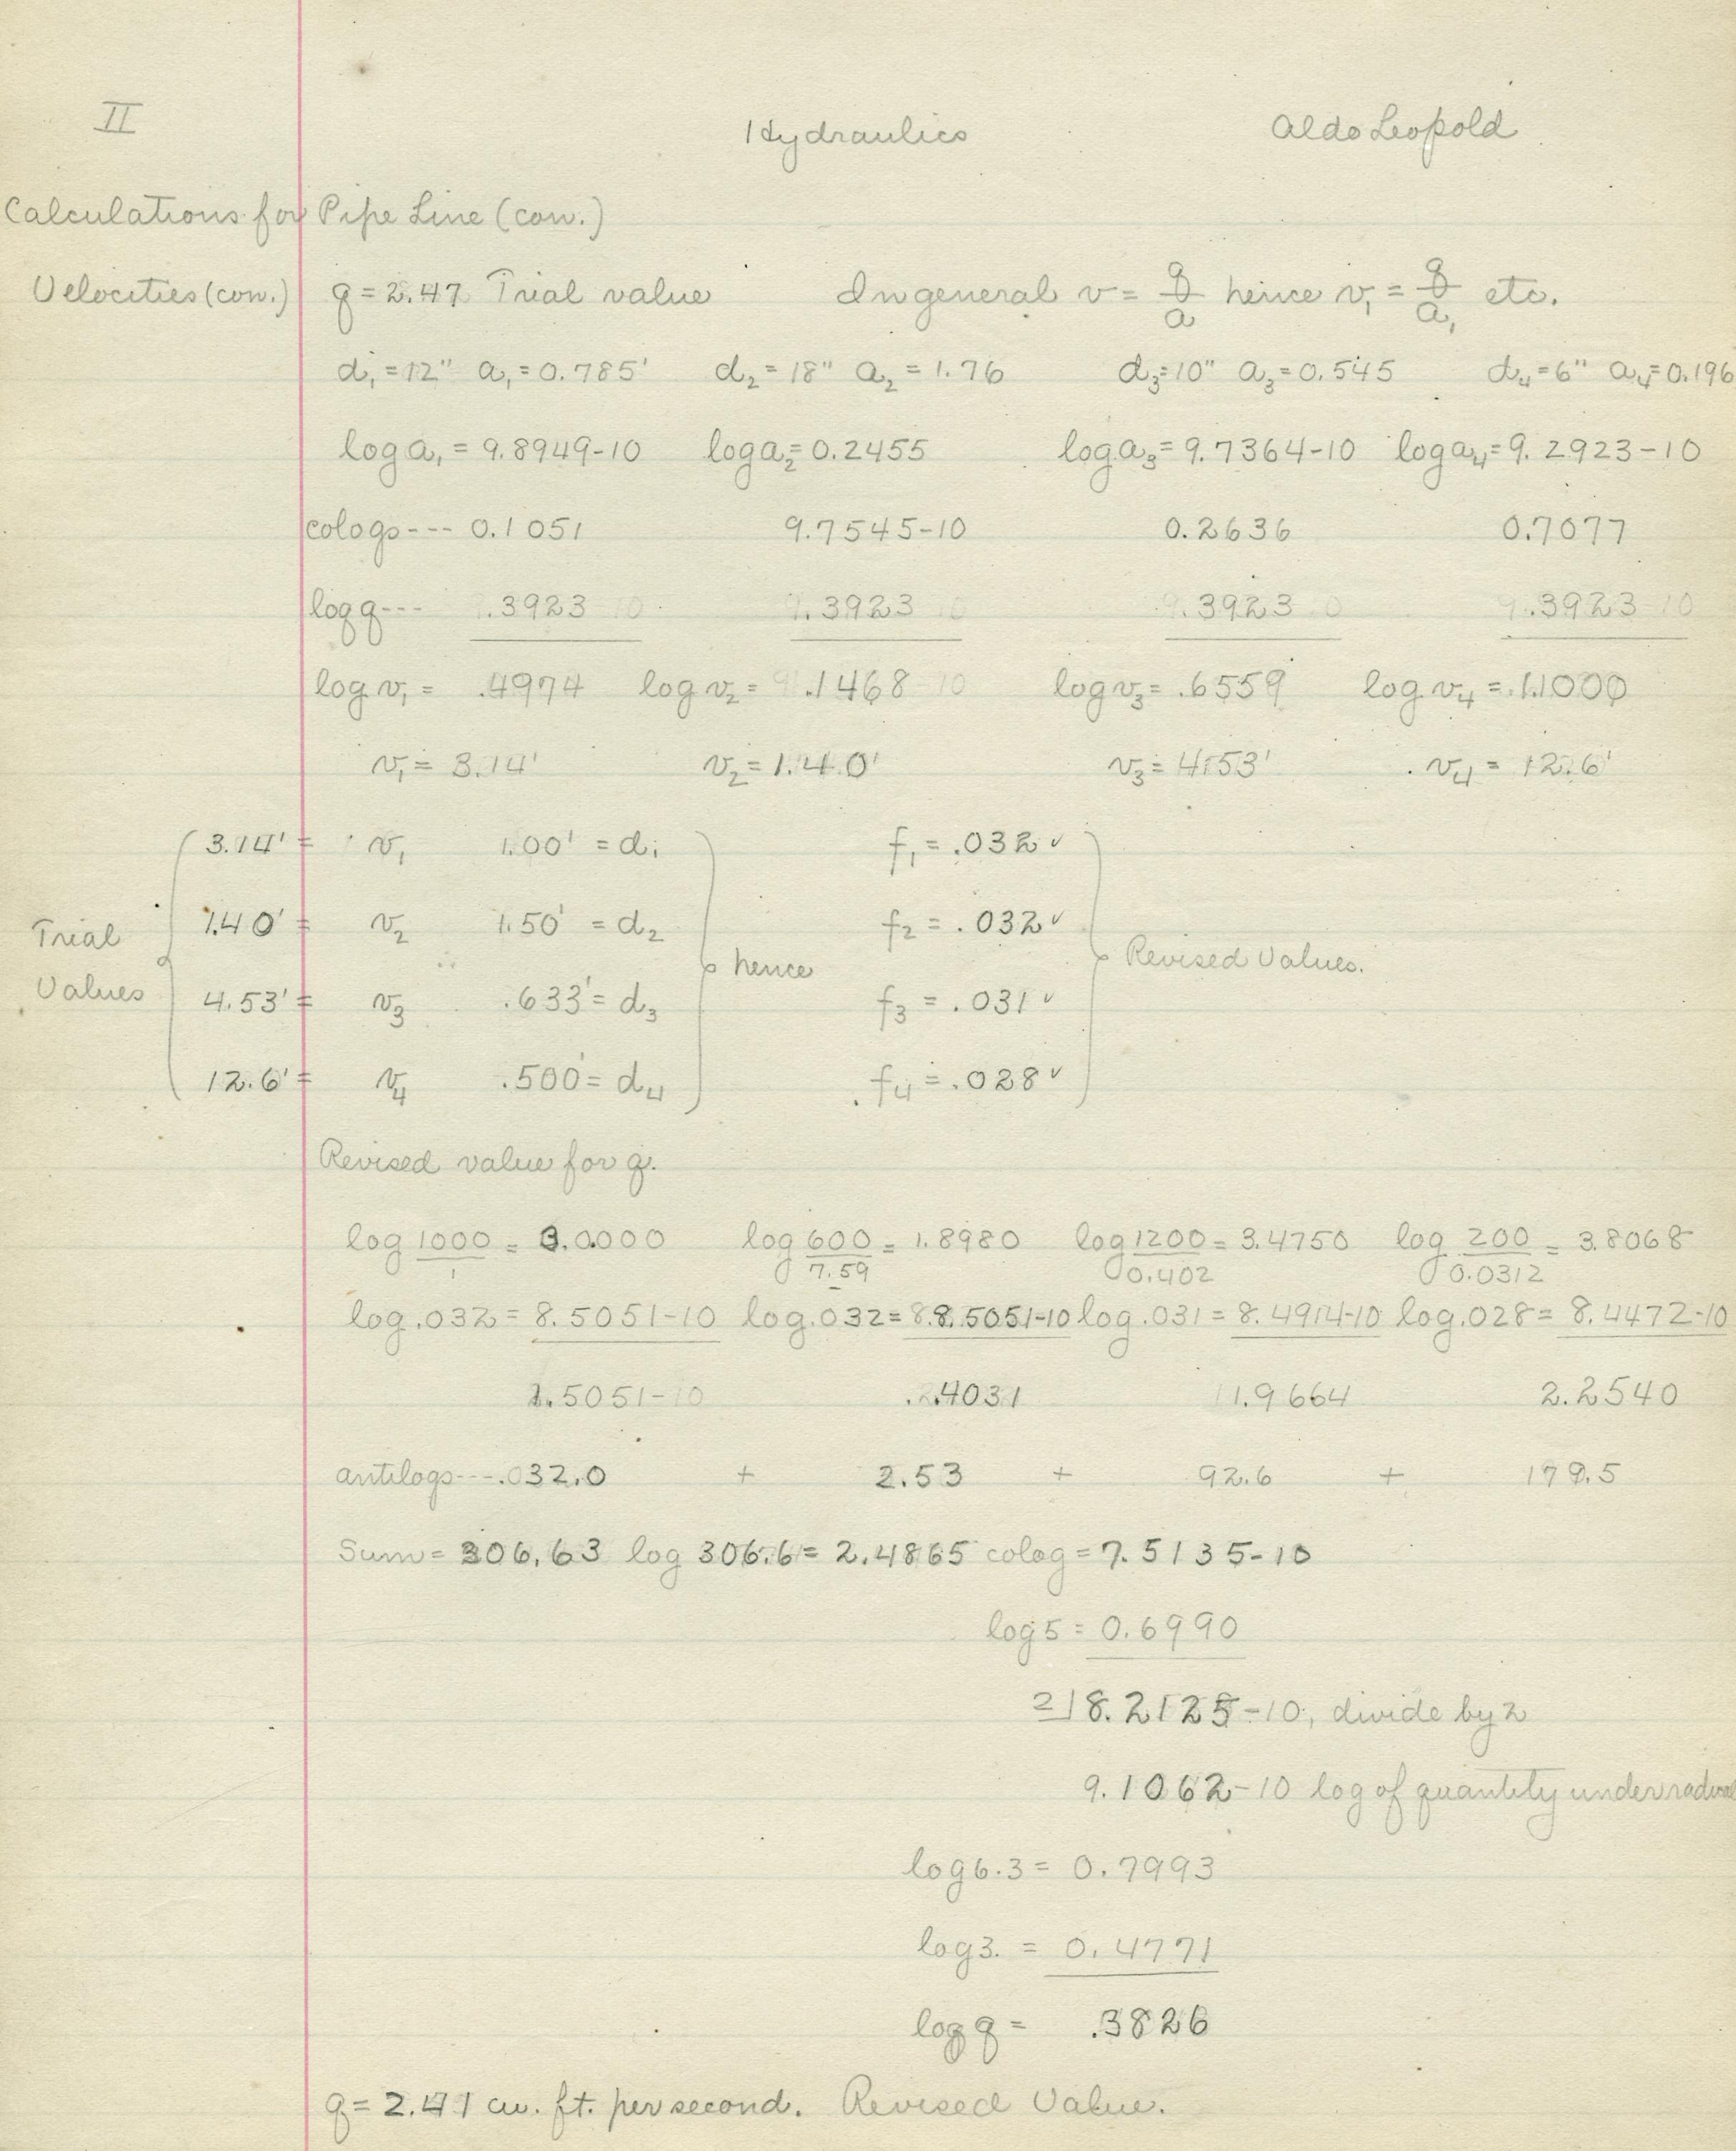 II Hydraulics Aldo Leopold
Calculations for Pipe Line (con.)
Velocities (con.) q = 2.47 Trial value In general v = q/a hence v₁ = q/a₁ etc.
d₁ = 12" a₁ = 0.785' d₂ = 18" a₂ = 1.76 d₃ = 10" a₃ = 0.545 d₄ = 6" a₄ = 0.196
log a₁ = 9.8949-10 log a₂ = 0.2455 log a₃ = 9.7364-10 log a₄ = 9.2923-10
cologs --- 0.1051 9.7545-10 0.2636 0.7077
log q --- .3923 .3923 .3923 .3923
log v₁ = .4974 log v₂ = .1468 log v₃ = .6559 log v₄ = 1.1000
v₁ = 3.14' v₂ = 1.40' v₃ = 4.53' v₄ = 12.6'
3.14' = v₁ 1.00' = d₁ f₁ = .032 ✓
1.40' = v₂ 1.50' = d₂ f₂ = .032 ✓
Trial Values ∴ hence Revised Values.
4.53' = v₃ .633' = d₃ f₃ = .031 ✓
12.6' = v₄ .500' = d₄ f₄ = .028 ✓
Revised value for q.
log 1000/1 = 3.0000 log 600/7.59 = 1.8980 log 1200/0.402 = 3.4750 log 200/0.0312 = 3.8068
log .032 = 8.5051-10 log .032 = 8.5051-10 log .031 = 8.4914-10 log .028 = 8.4472-10
1.5051 .4031 1.9664 2.2540
antilogs --- 32.0 + 2.53 + 92.6 + 179.5
Sum = 306.63 log 306.6 = 2.4865 colog = 7.5135-10
log 5 = 0.6990
2)8.2125-10, divide by 2
9.1062-10 log of quantity under radical
log 6.3 = 0.7993
log 3. = 0.4771
log q = .3826
q = 2.41 cu. ft. per second. Revised Value.